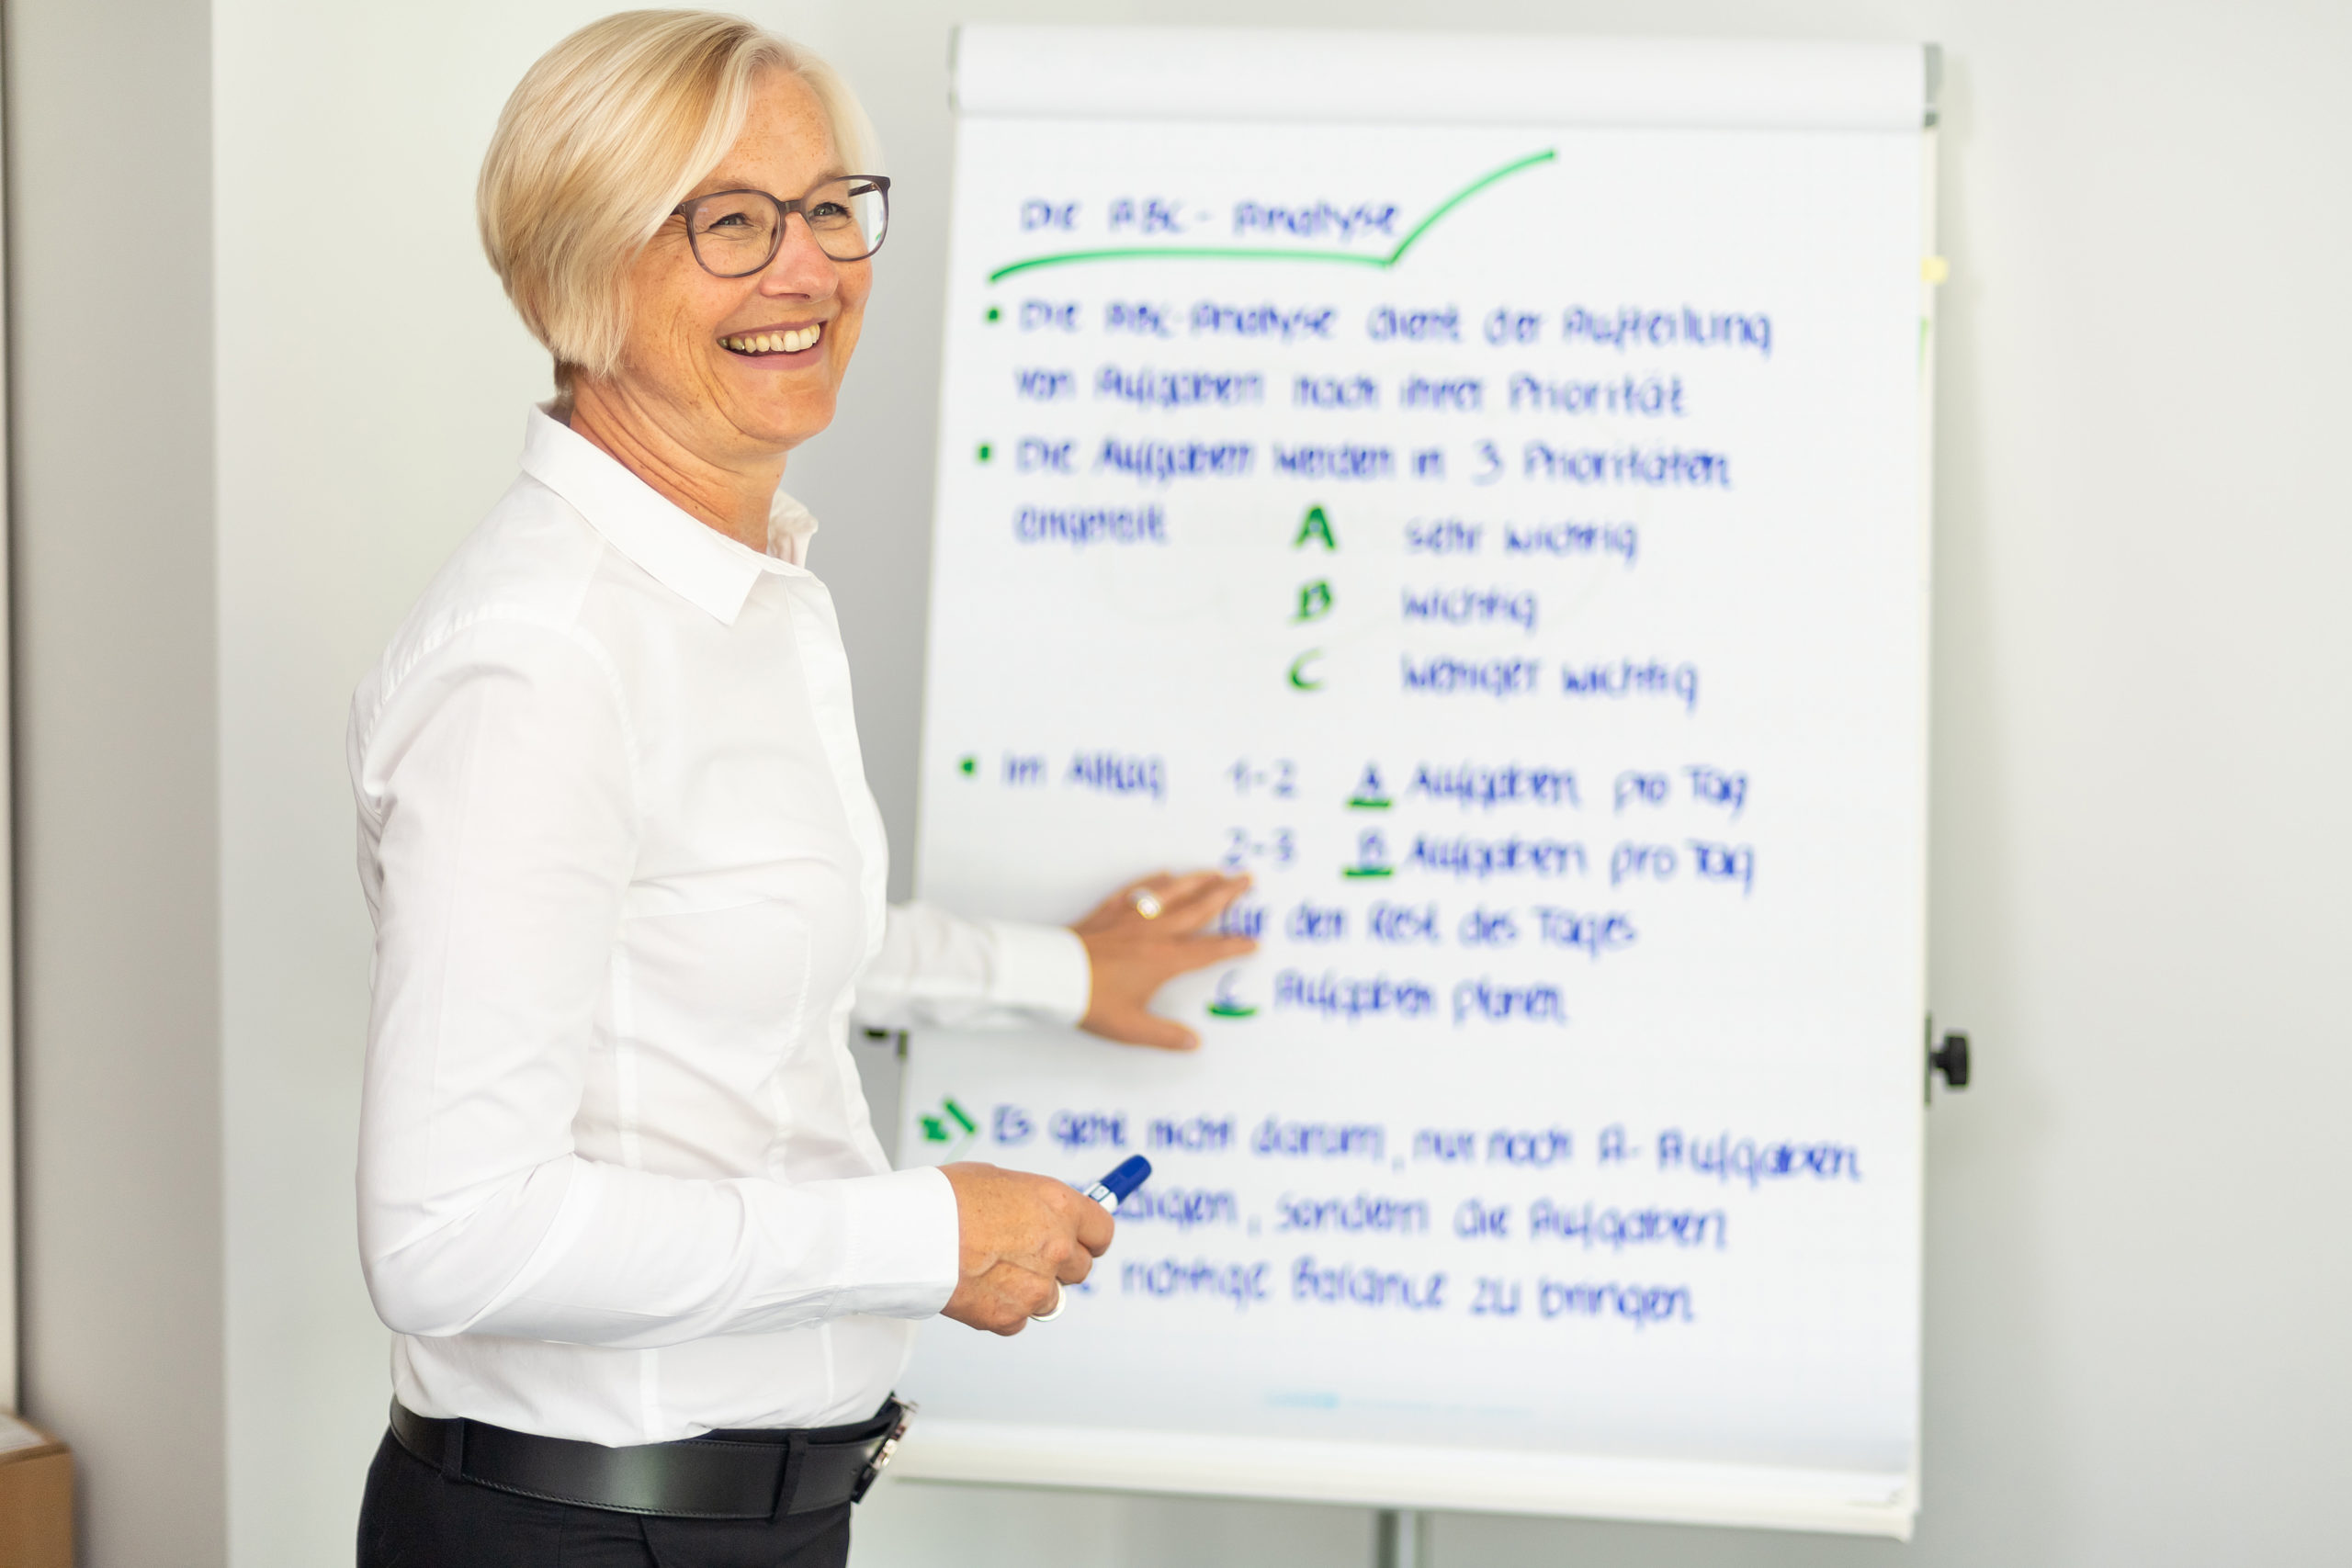 Die ABC-Analyse
Die ABC-Analyse dient der Aufteilung
von Aufgaben nach ihrer Priorität
Die Aufgaben werden in 3 Prioritäten
eingeteilt A sehr wichtig
B wichtig
C weniger wichtig
Im Alltag 1-2 A Aufgaben pro Tag
2-3 B Aufgaben pro Tag
für den Rest des Tages
C Aufgaben planen
Es geht nicht darum, nur noch A-Aufgaben
sondern die Aufgaben
richtige Balance zu bringen